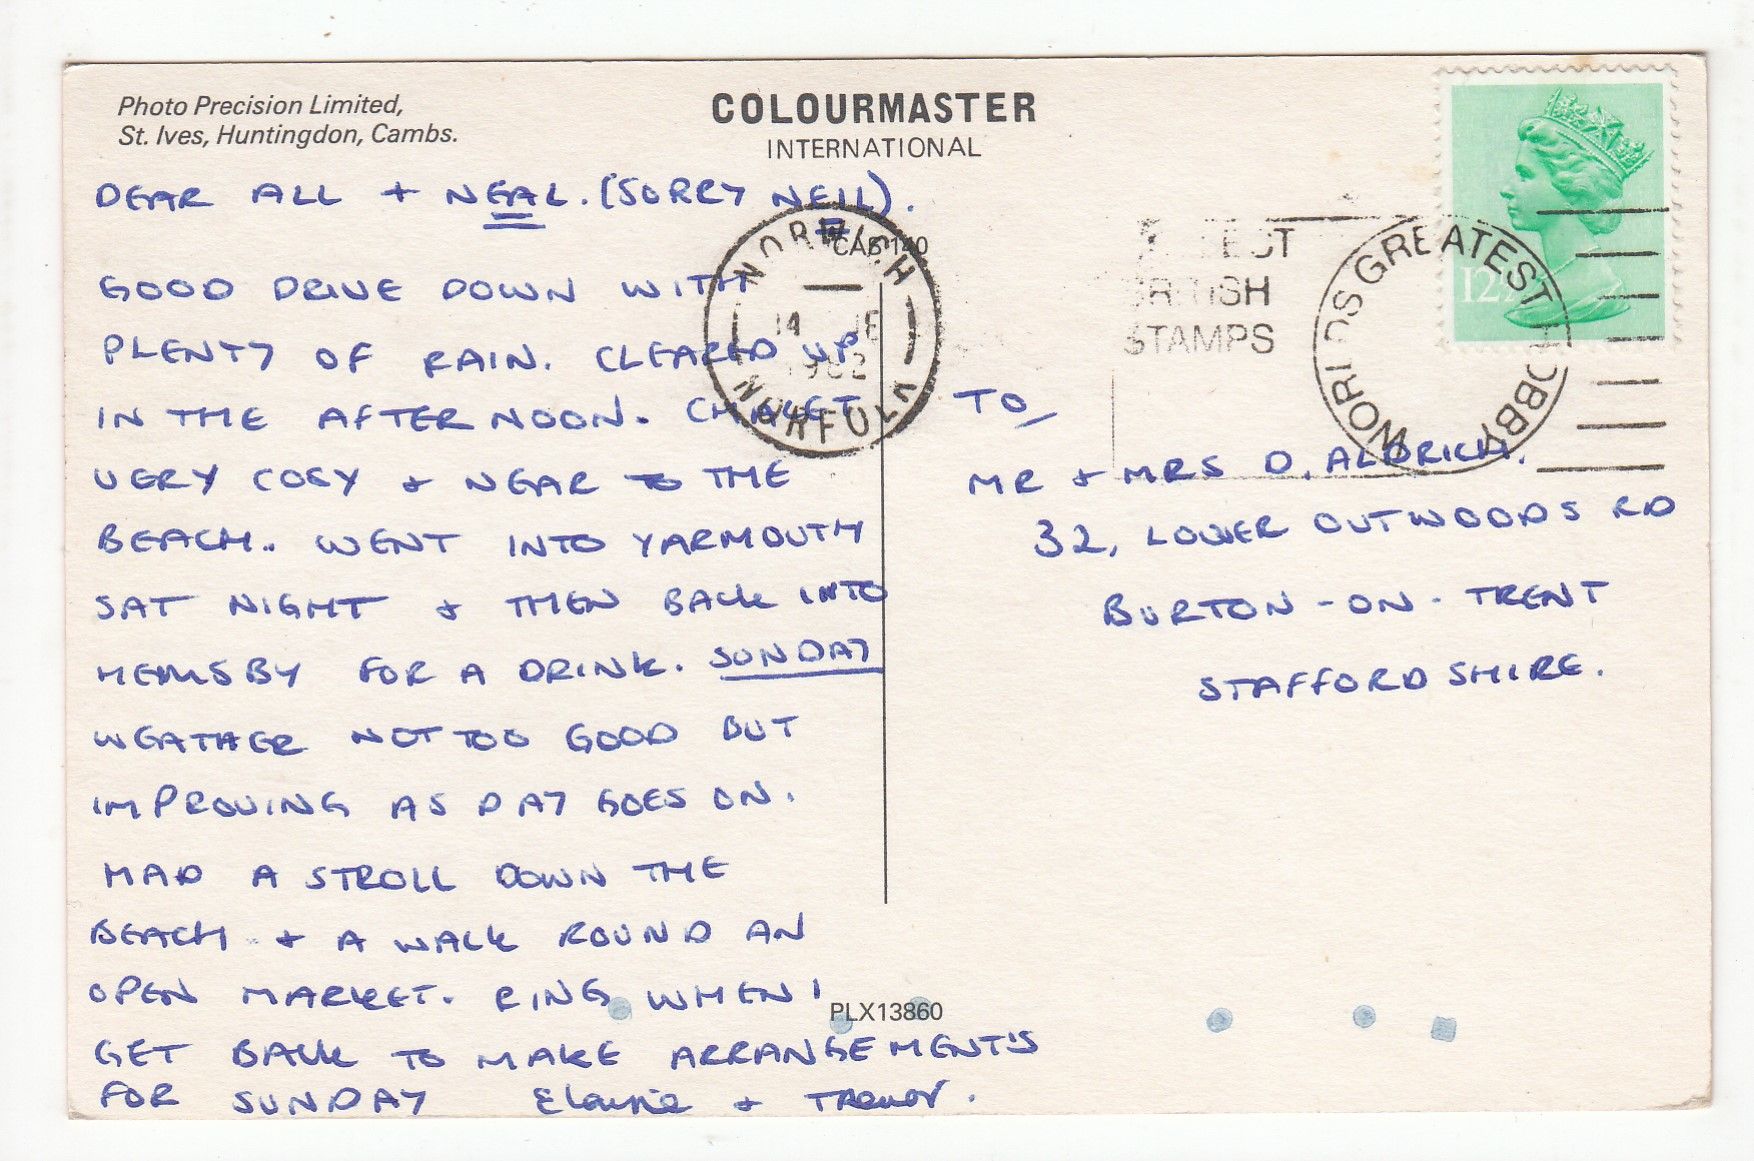 Photo Precision Limited,
St. Ives, Huntingdon, Cambs.
COLOURMASTER
INTERNATIONAL
DEAR ALL + NEAL. (SORRY NEIL).
GOOD DRIVE DOWN WITH
PLENTY OF RAIN. CLEARED UP
IN THE AFTERNOON. CHALET
VERY COSY + NEAR TO THE
BEACH.. WENT INTO YARMOUTH
SAT NIGHT + THEN BACK INTO
HEMSBY FOR A DRINK. SUNDAY
WEATHER NOT TOO GOOD BUT
IMPROVING AS DAY GOES ON.
HAD A STROLL DOWN THE
BEACH + A WALK ROUND AN
OPEN MARKET. RING WHEN I
GET BACK TO MAKE ARRANGEMENT'S
FOR SUNDAY Elaine + Trevor.
PLX13860
NORWICH
14 JE
1982
NORFOLK
BRITISH
STAMPS
WORLDS GREATEST HOBBY
TO
MR + MRS D. ALDRICH.
32, LOWER OUTWOODS RD
BURTON-ON-TRENT
STAFFORDSHIRE.